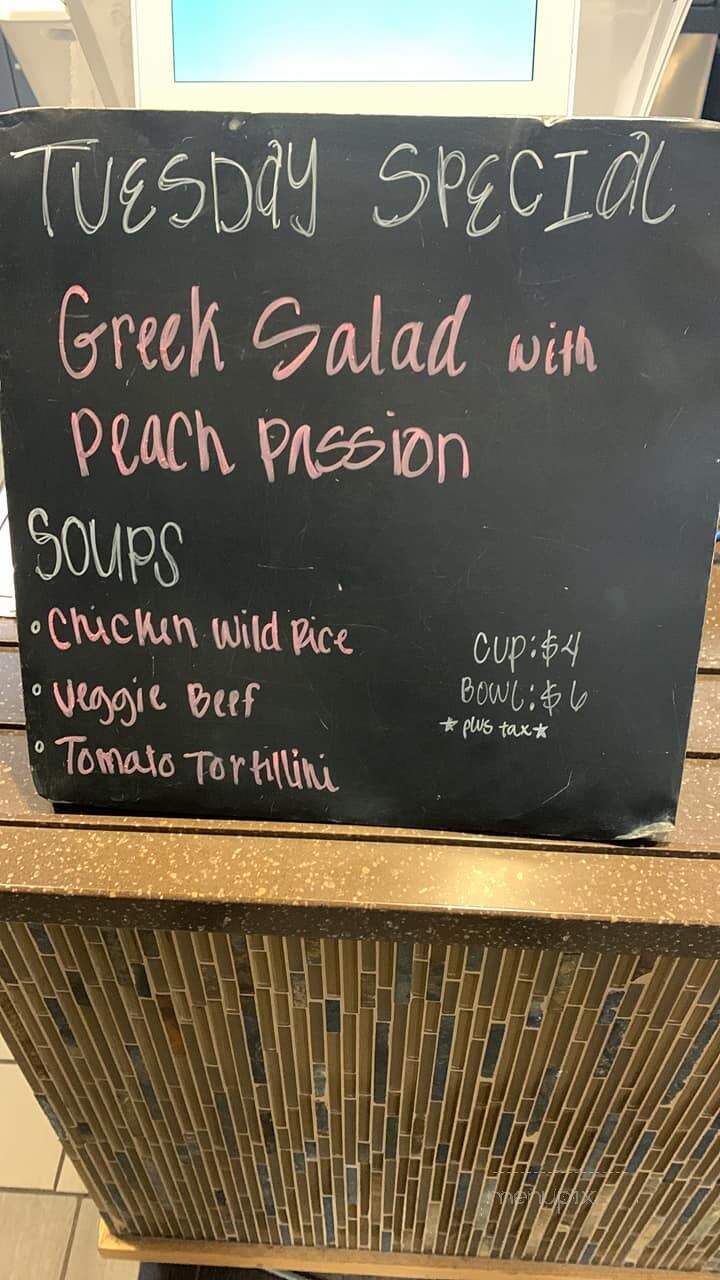 TUESDAY SPECIAL
Greek Salad with
Peach Passion
SOUPS
• Chicken Wild Rice
• Veggie Beef
• Tomato Tortillini
CUP: $4
BOWL: $6
★ plus tax ★
menupix